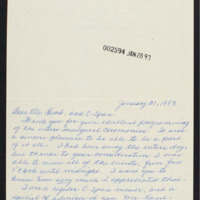 002594 JAN 28 93
January 21, 1993
Dear Mr. Lamb, and C-Span
Thank you for your excellent programming
of the entire Inaugural Ceremonies. It was
a sincere pleasure to be able to be a part
of it all. I had away the entire day,
but thanks to your consideration I was
able to view all of the events, from
until midnight. I want you to
know how very much I appreciated that.
I am a C-Span viewer, and
a of of you. Mr. Lamb.